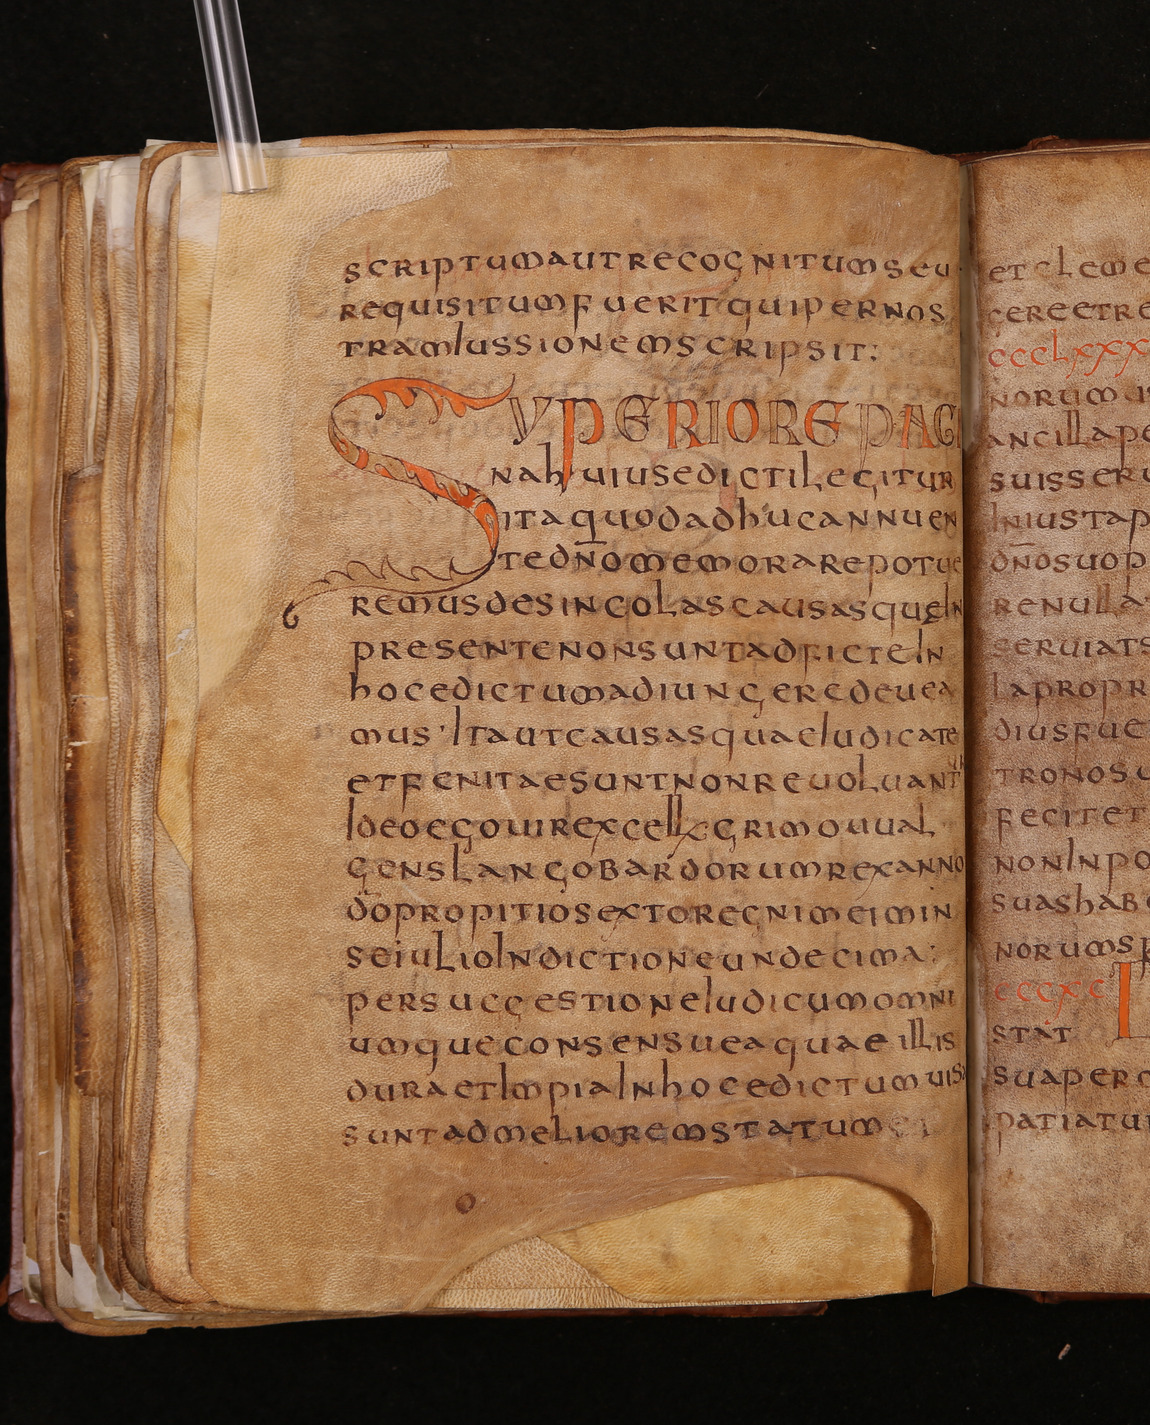 scriptum aut recognitum seu
requisitum fuerit qui per nos
tram Iussionem scripsit:
SVPERIORE PAGI
na huiius edicti legitur
ita quod adhuc annuen
te dño memorare potue
remus de sincolas causas que In
presente non sunt adficte In
hoc edictum adiungere deuea
mus · Ita ut causas quae Iudicate
et fenitae sunt non reuoluant
Ideo ego uir excell grimouual
gens langobardorum rex anno
do propitio sexto regni mei min
se iulio Indictione undecima:
per suggestione Iudicum omni
umque consensu ea quae illis
dura et Impia In hoc edictum uisa
sunt ad meliorem statum
et cleme
cere et re
ccclxxx
norum
ancilla pe
suis seru
Iniusta p
dños uo p
re nulla
seruiat s
la propr
dius fue
tronos u
fecit et
non In po
suas hab
norum sp
cccxc
stat
sua per
patiatur